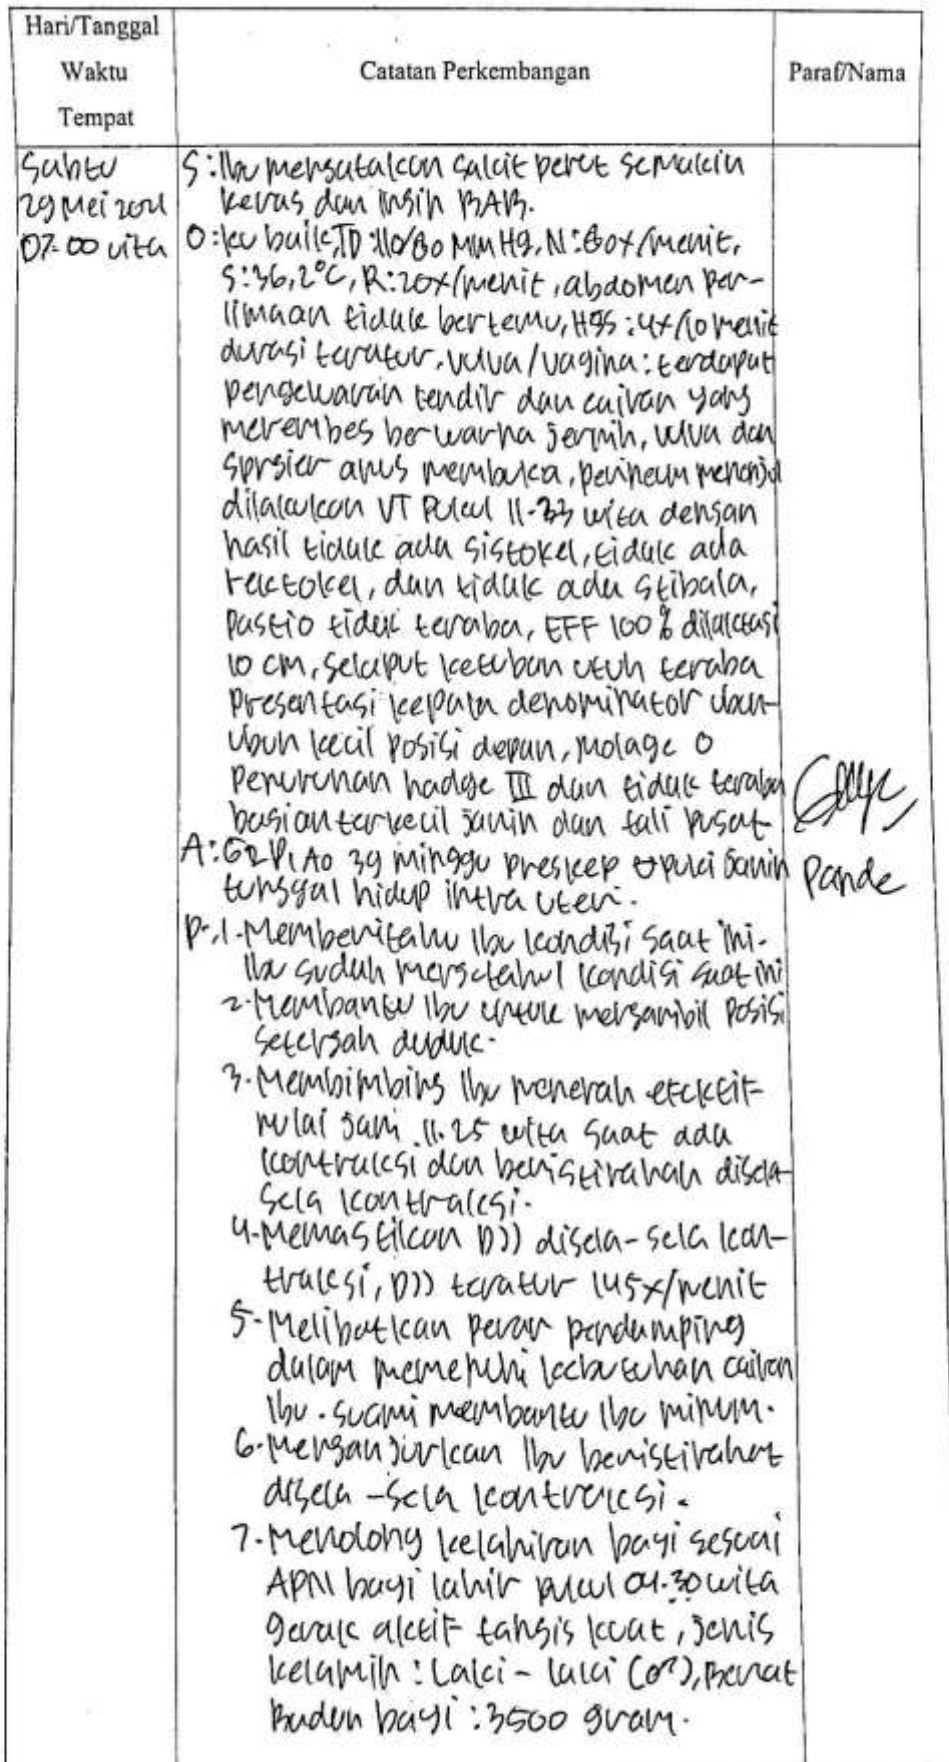 Hari/Tanggal
Waktu
Tempat
Catatan Perkembangan
Paraf/Nama
Sabtu
29 Mei 2021
07.00 wita
S: Ibu mengatakan sakit perut semakin
keras dan ingin BAB.
O: ku baik, TD: 110/80 mmHg, N: 80x/menit,
S: 36,2°C, R: 20x/menit, abdomen per-
limaan tidak bertemu, His: 4x/10 menit
durasi teratur, vulva/vagina: terdapat
pengeluaran lendir dan cairan yang
merembes berwarna jernih, vulva dan
spngier anus membuka, perineum menonjol
dilakukan VT Pukul 11.33 wita dengan
hasil tidak ada sistokel, tidak ada
rektokel, dan tidak ada skibala,
Postio tidak teraba, EFF 100% dilaktasi
10 cm, selaput ketuban utuh teraba
presentasi kepala denominator ubun-
ubun kecil posisi depan, molage 0
penurunan hadge III dan tidak teraba
bagian terkecil janin dan tali pusat
A: G2P1A0 39 minggu preskep puki janin
tunggal hidup intra uteri.
P: 1. Memberitahu Ibu kondisi saat ini.
Ibu sudah mengetahui kondisi saat ini
2. Membantu Ibu untuk mengambil posisi
setengah duduk.
3. Membimbing Ibu menerah efektif
mulai jam 11.25 wita saat ada
kontraksi dan beristirahah disela-
sela kontraksi.
4. Memastikan DJJ disela-sela kon-
traksi, DJJ teratur 145x/menit
5. Melibatkan peran pendamping
dalam memenuhi kebutuhan cairan
Ibu. Suami membantu Ibu minum.
6. Menganjurkan Ibu beristirahat
disela-sela kontraksi.
7. Menolong kelahiran bayi sesuai
APN bayi lahir pukul 01.30 wita
gerak aktif tangis kuat, jenis
kelamin: Laki-laki (♂), Berat
Badan bayi: 3500 gram.
Pande